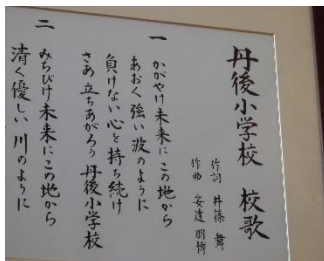 丹後小学校 校歌
作詞 井篠 舞
作曲 安達 朋博
一
かがやけ未来にこの地から
あおく強い波のように
負けない心を持ち続け
さあ立ちあがろう 丹後小学校
二
みちびけ未来にこの地から
清く優しい川のように